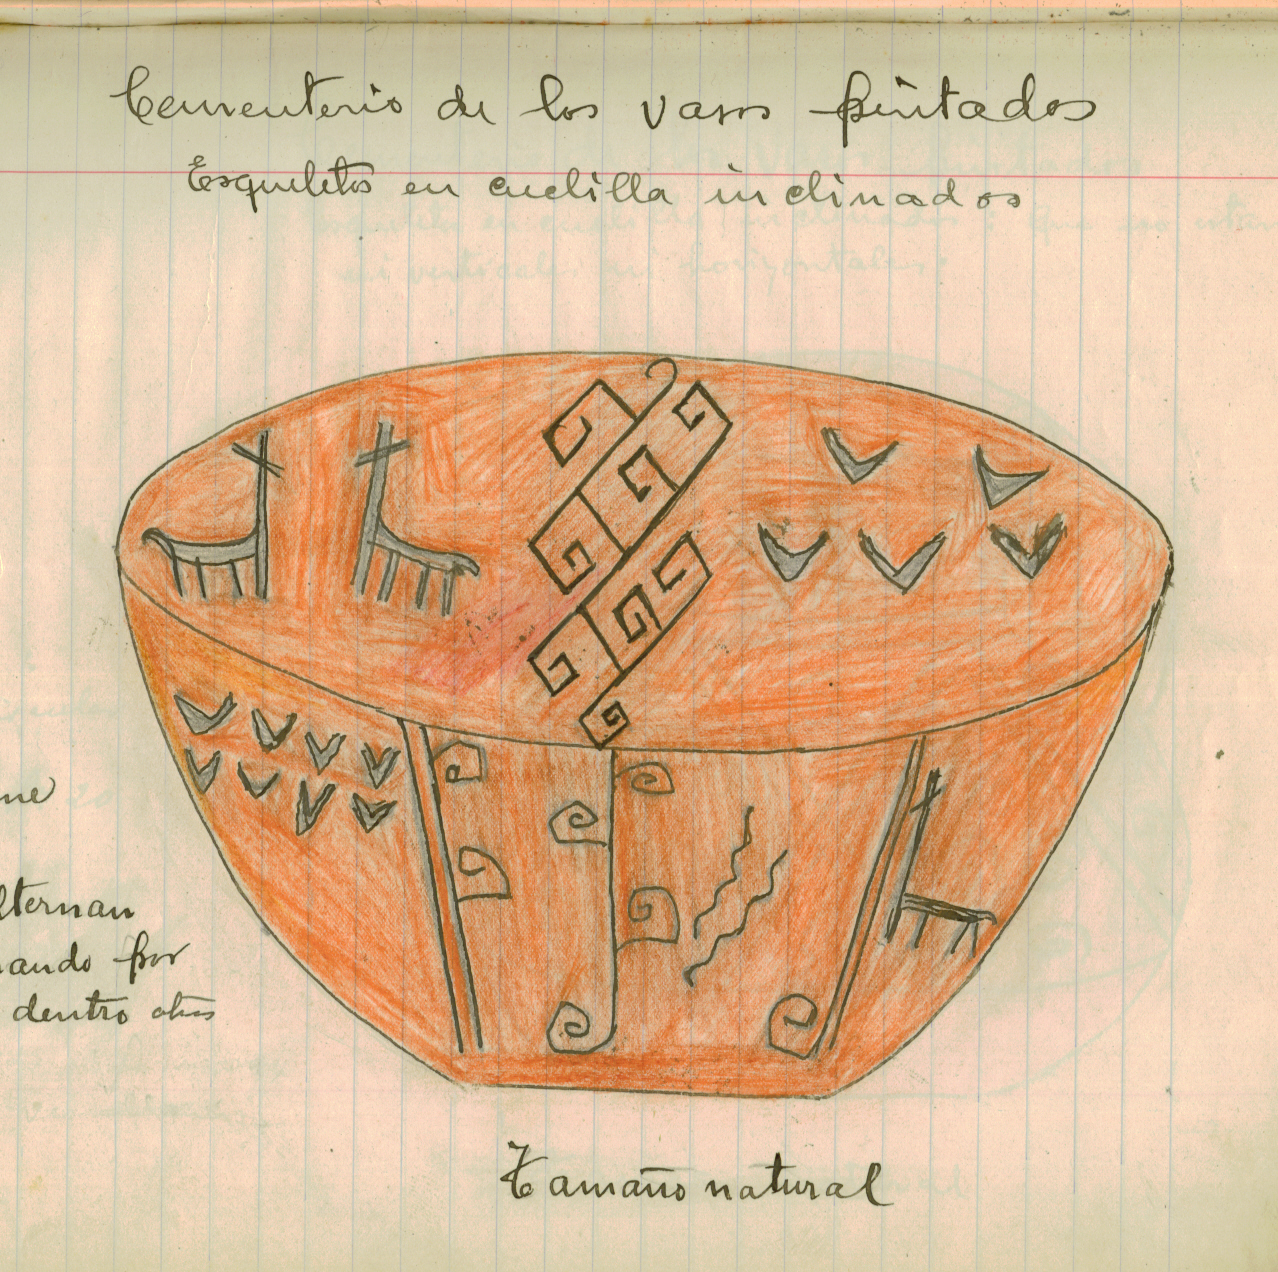 Cementerio de los vasos pintados
Esqueletos en cuclilla inclinados
ne
lternan
ando por
dentro otros
Tamaño natural